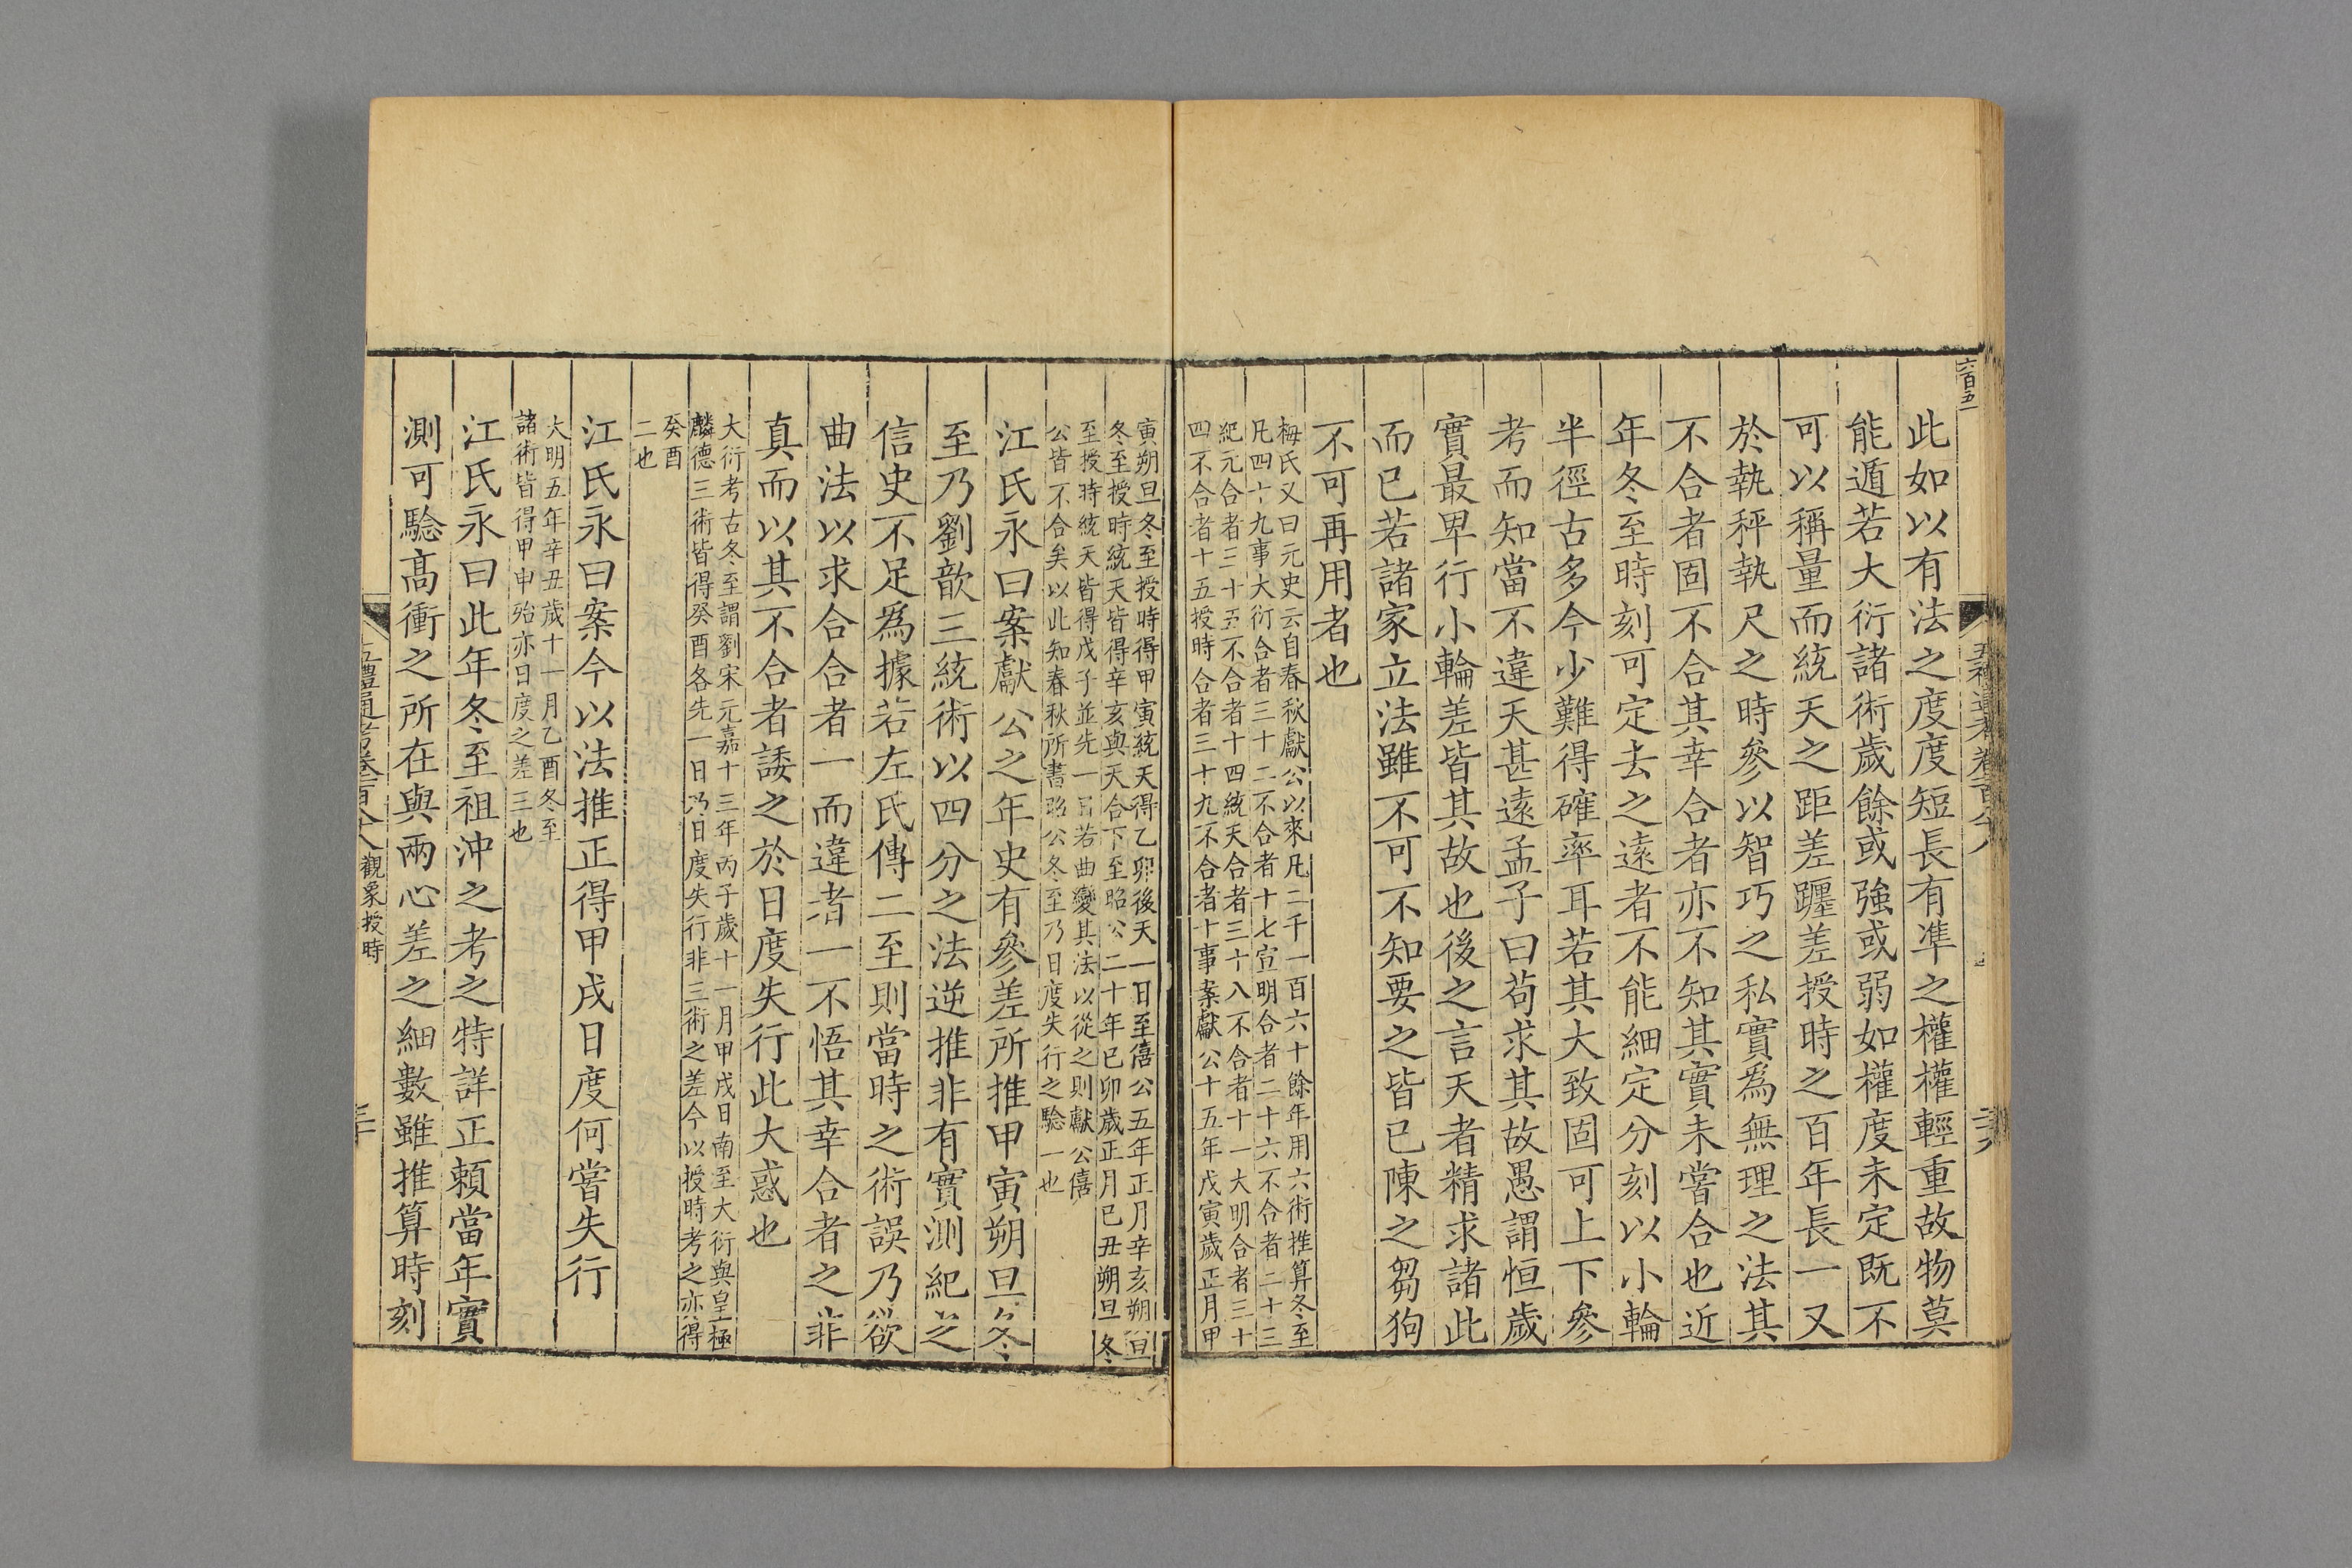 六百五
此如以有法之度度短長有準之權權輕重故物莫
能遁若大衍諸術歲餘或強或弱如權度未定既不
可以稱量而統天之距差躔差授時之百年長一又
於執秤執尺之時參以智巧之私實爲無理之法其
不合者固不合其幸合者亦不知其實未嘗合也近
年冬至時刻可定去之遠者不能細定分刻以小輪
半徑古多今少難得確率耳若其大致固可上下參
考而知當不違天甚遠孟子曰苟求其故愚謂恒歲
實最卑行小輪差皆其故也後之言天者精求諸此
而已若諸家立法雖不可不知要之皆已陳之芻狗
不可再用者也
梅氏又曰元史云自春秋獻公以來凡二千一百六十餘年用六術推算冬至
凡四十九事大衍合者三十二不合者十七宣明合者二十六不合者二十三
紀元合者三十五不合者十四統天合者三十八不合者十一大明合者三十
四不合者十五授時合者三十九不合者十事案獻公十五年戊寅歲正月甲
寅朔旦冬至授時得甲寅統天得乙卯後天一日至僖公五年正月辛亥朔旦
冬至授時統天皆得辛亥與天合下至昭公二十年已卯歲正月己丑朔旦冬
至授時統天皆得戊子並先一日若曲變其法以從之則獻公僖
公皆不合矣以此知春秋所書昭公冬至乃日度失行之驗一也
江氏永曰案獻公之年史有參差所推甲寅朔旦冬
至乃劉歆三統術以四分之法逆推非有實測紀之
信史不足爲據若左氏傳二至則當時之術誤乃欲
曲法以求合合者一而違者一不悟其幸合者之非
真而以其不合者諉之於日度失行此大惑也
大衍考古冬至謂劉宋元嘉十三年丙子歲十一月甲戌日南至大衍與皇極
麟德三術皆得癸酉各先一日乃日度失行非三術之差今以授時考之亦得
癸酉
二也
江氏永曰案今以法推正得甲戌日度何嘗失行
大明五年辛丑歲十一月乙酉冬至
諸術皆得甲申殆亦日度之差三也
江氏永曰此年冬至祖沖之考之特詳正賴當年實
測可驗高衝之所在與兩心差之細數雖推算時刻
五禮通考卷百八八觀象授時